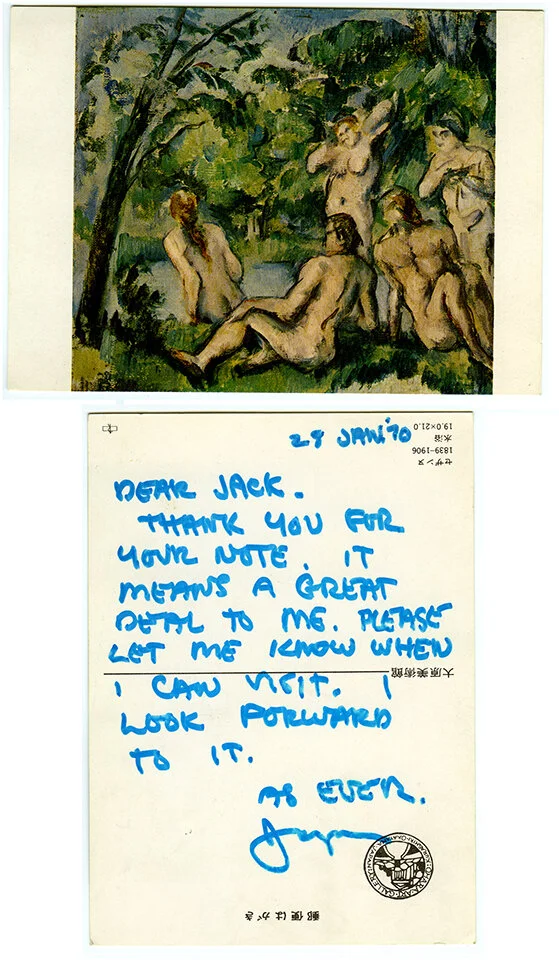 29 JAN '70
セザンヌ
1839–1906
水浴
19.0×21.0
DEAR JACK.
THANK YOU FOR
YOUR NOTE. IT
MEANS A GREAT
DEAL TO ME. PLEASE
LET ME KNOW WHEN
大原美術館
I CAN VISIT. I
LOOK FORWARD
TO IT.
AS EVER.
郵便はがき